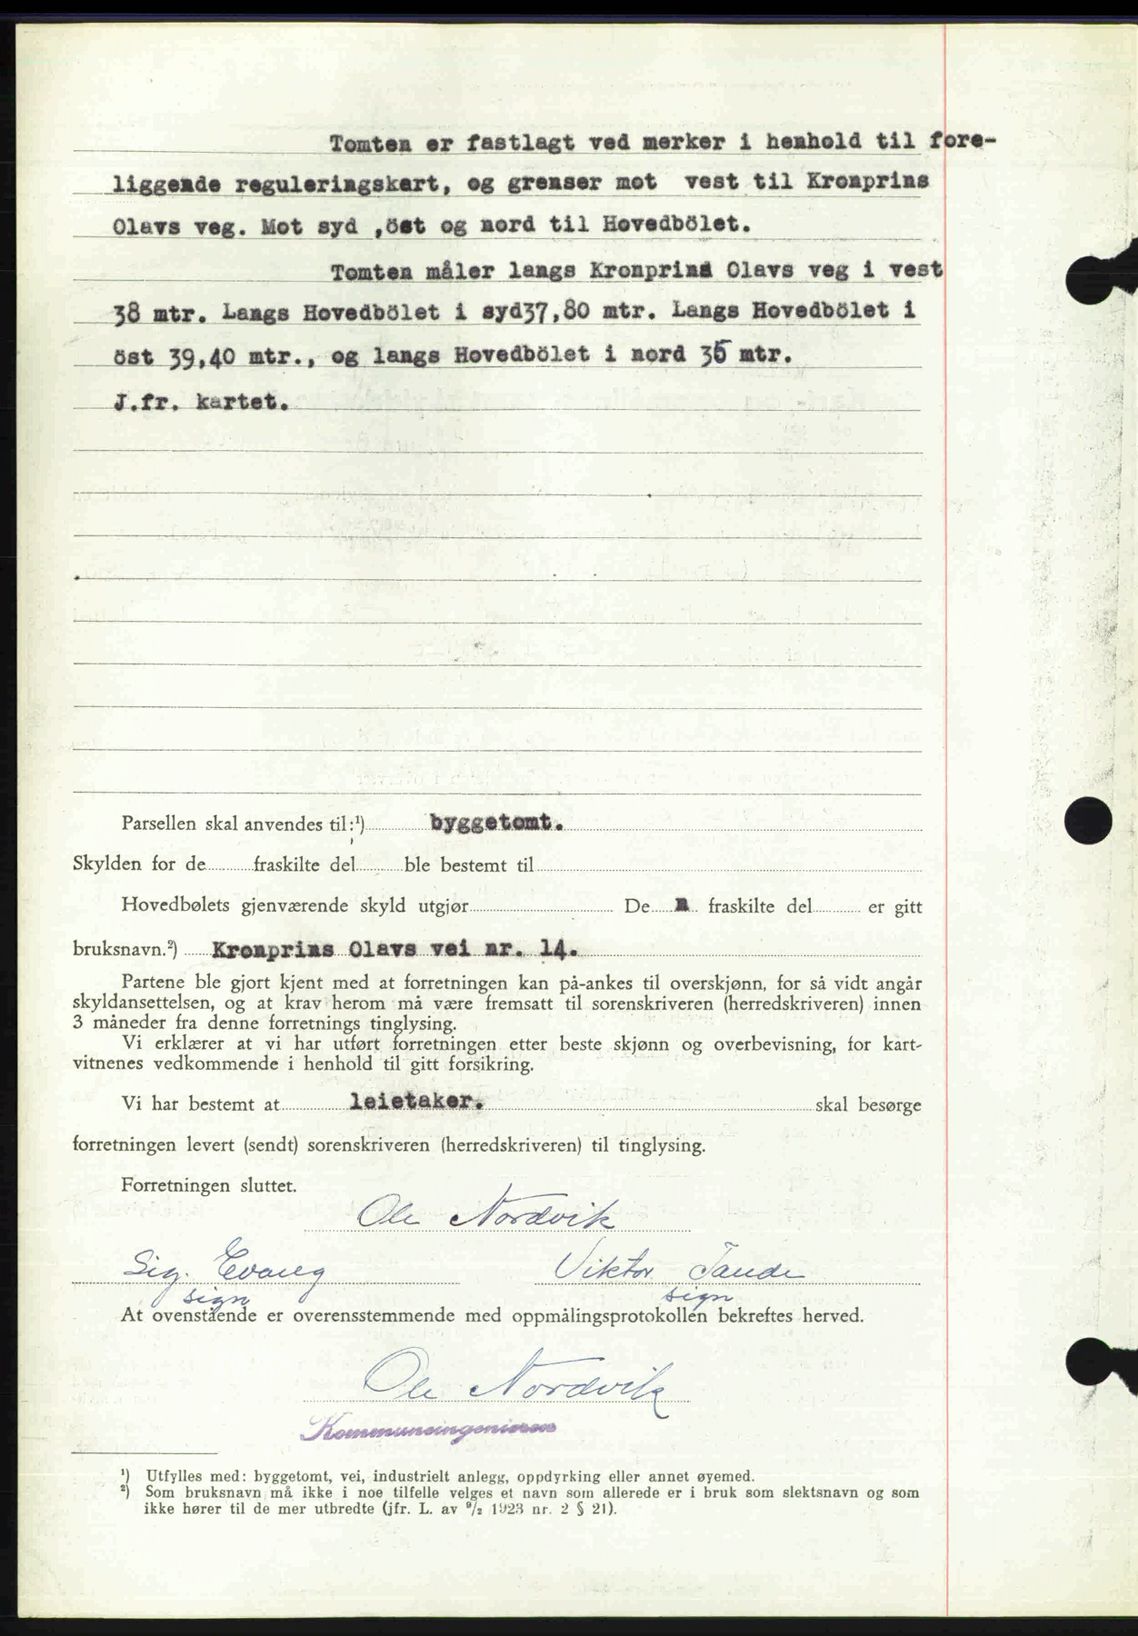 Tomten er fastlagt ved merker i henhold til fore-
liggende reguleringskart, og grenser mot vest til Kronprins
Olavs veg. Mot syd ,öst og nord til Hovedbölet.
Tomten måler langs Kronprins Olavs veg i vest
38 mtr. Langs Hovedbölet i syd37,80 mtr. Langs Hovedbölet i
öst 39,40 mtr., og langs Hovedbölet i nord 36 mtr.
J.fr. kartet.
Parsellen skal anvendes til:¹) byggetomt.
Skylden for de fraskilte del ble bestemt til
Hovedbølets gjenværende skyld utgjør De n fraskilte del er gitt
bruksnavn.²) Kronprins Olavs vei nr. 14.
Partene ble gjort kjent med at forretningen kan på-ankes til overskjønn, for så vidt angår
skyldansettelsen, og at krav herom må være fremsatt til sorenskriveren (herredskriveren) innen
3 måneder fra denne forretnings tinglysing.
Vi erklærer at vi har utført forretningen etter beste skjønn og overbevisning, for kart-
vitnenes vedkommende i henhold til gitt forsikring.
Vi har bestemt at leietaker. skal besørge
forretningen levert (sendt) sorenskriveren (herredskriveren) til tinglysing.
Forretningen sluttet.
Ole Nordvik
Sig. Evang Viktor Tande
sign sign
At ovenstående er overensstemmende med oppmålingsprotokollen bekreftes herved.
Ole Nordvik
Kommuneingeniøren
¹) Utfylles med: byggetomt, vei, industrielt anlegg, oppdyrking eller annet øyemed.
²) Som bruksnavn må ikke i noe tilfelle velges et navn som allerede er i bruk som slektsnavn og som
ikke hører til de mer utbredte (jfr. L. av ⁹/₂ 1923 nr. 2 § 21).